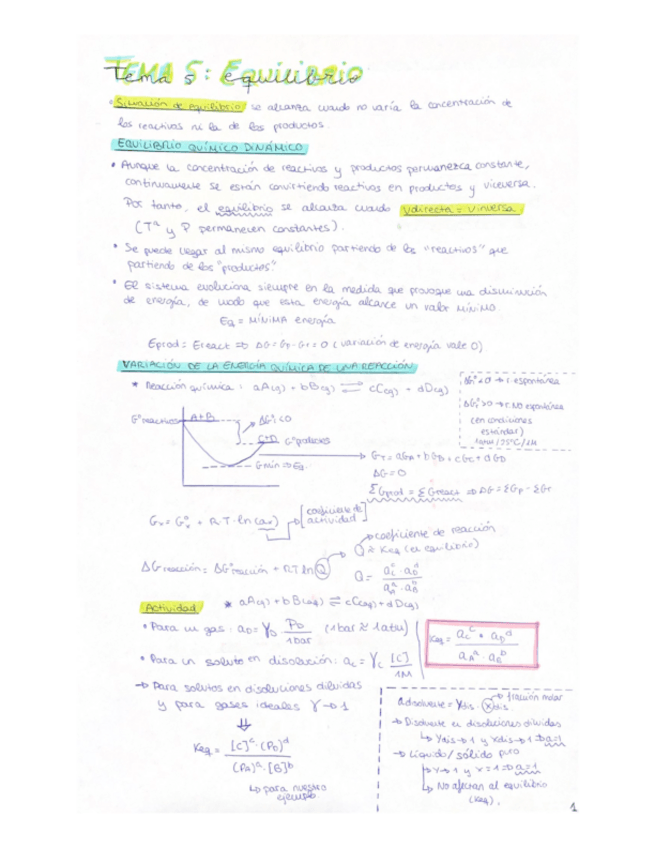 Tema 5: Equilibrio
• Situación de equilibrio: se alcanza cuando no varía la concentración de
los reactivos ni la de los productos.
EQUILIBRIO QUÍMICO DINÁMICO
• Aunque la concentración de reactivos y productos permanezca constante,
continuamente se están convirtiendo reactivos en productos y viceversa.
Por tanto, el equilibrio se alcanza cuando vdirecta = vinversa.
(Tª y P permanecen constantes).
• Se puede llegar al mismo equilibrio partiendo de los "reactivos" que
partiendo de los "productos".
• El sistema evoluciona siempre en la medida que provoque una disminución
de energía, de modo que esta energía alcance un valor MÍNIMO.
Eq = MÍNIMA energía
Eprod = Ereact ⇒ ΔG = Gp - Gr = 0 (variación de energía vale 0)
VARIACIÓN DE LA ENERGÍA QUÍMICA DE UNA REACCIÓN
* Reacción química: aA(g) + bB(g) ⇌ cC(g) + dD(g)
ΔG° < 0 → r. espontánea
ΔG° > 0 → r. NO espontánea
(en condiciones
estándar)
1atm/25°C/1M
G° reactivos A+B
ΔG° < 0
C+D G° productos
G min ⇒ Eq.
GT = aGA + bGB = cGC + dGD
ΔG = 0
ΣGprod = ΣGreact ⇒ ΔG = ΣGp - ΣGr
Gx = G°x + R·T·ln(ax) → [coeficiente de
actividad]
→ coeficiente de reacción
Q ≈ Keq (en equilibrio)
ΔG reacción = ΔG° reacción + RT ln Q
Q = aC^c · aD^d / aA^a · aB^b
Actividad * aA(g) + bB(aq) ⇌ cC(aq) + dD(g)
• Para un gas: aD = γD PD / 1bar (1bar ≈ 1atm)
Keq = aC^c · aD^d / aA^a · aB^b
• Para un soluto en disolución: aC = γC [C] / 1M
→ Para solutos en disoluciones diluidas
y para gases ideales γ → 1
⇓
Keq = [C]^c · (PD)^d / (PA)^a · [B]^b
↳ para nuestro
ejemplo.
a disolvente = γdis · Xdis. → fracción molar
→ Disolvente en disoluciones diluidas
↳ γdis → 1 y Xdis → 1 ⇒ a=1
→ Líquido/sólido puro
↳ γ → 1 y x = 1 ⇒ a=1
↳ No afectan al equilibrio
(Keq).
1